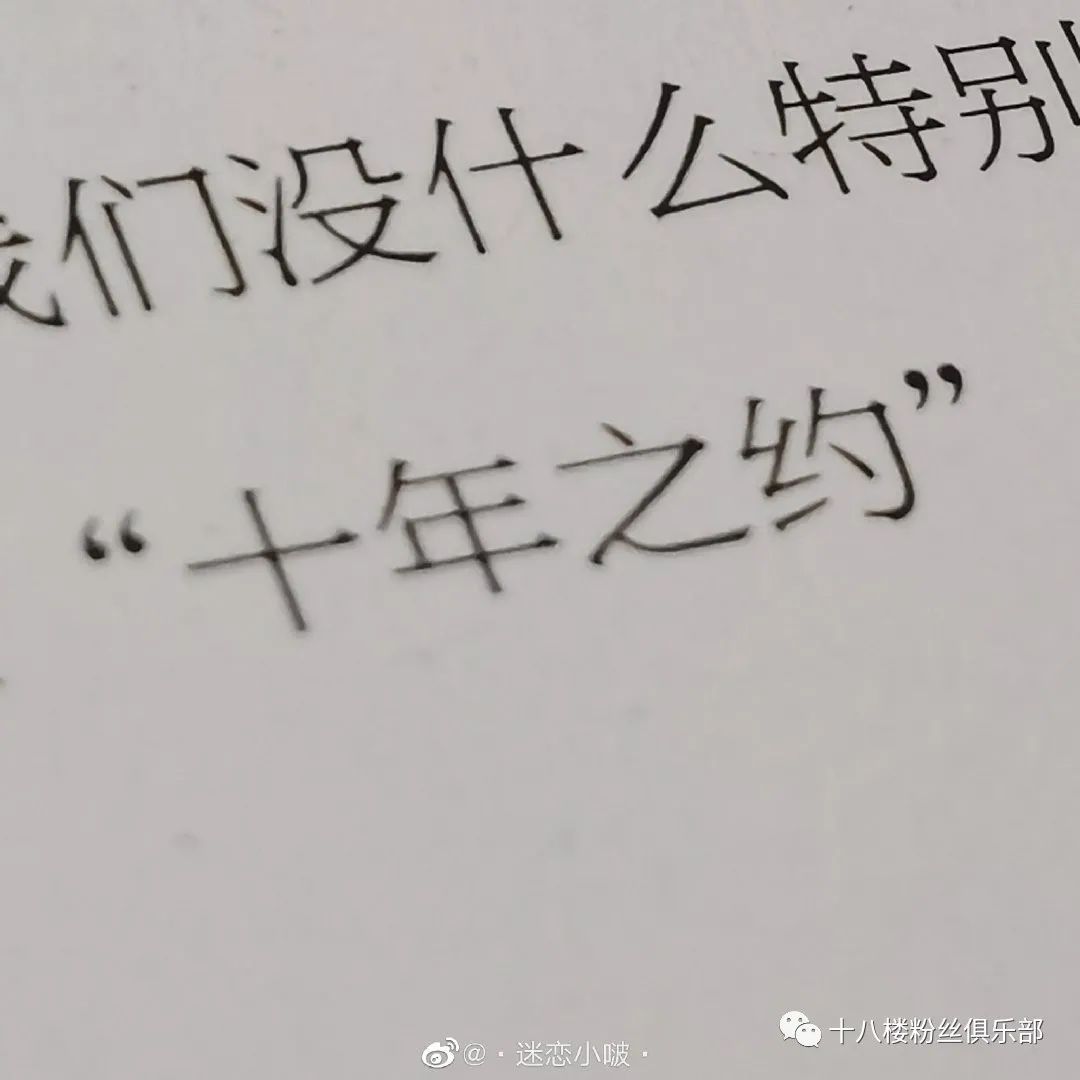 我们没什么特别
“十年之约”
@·迷恋小啵·
十八楼粉丝俱乐部